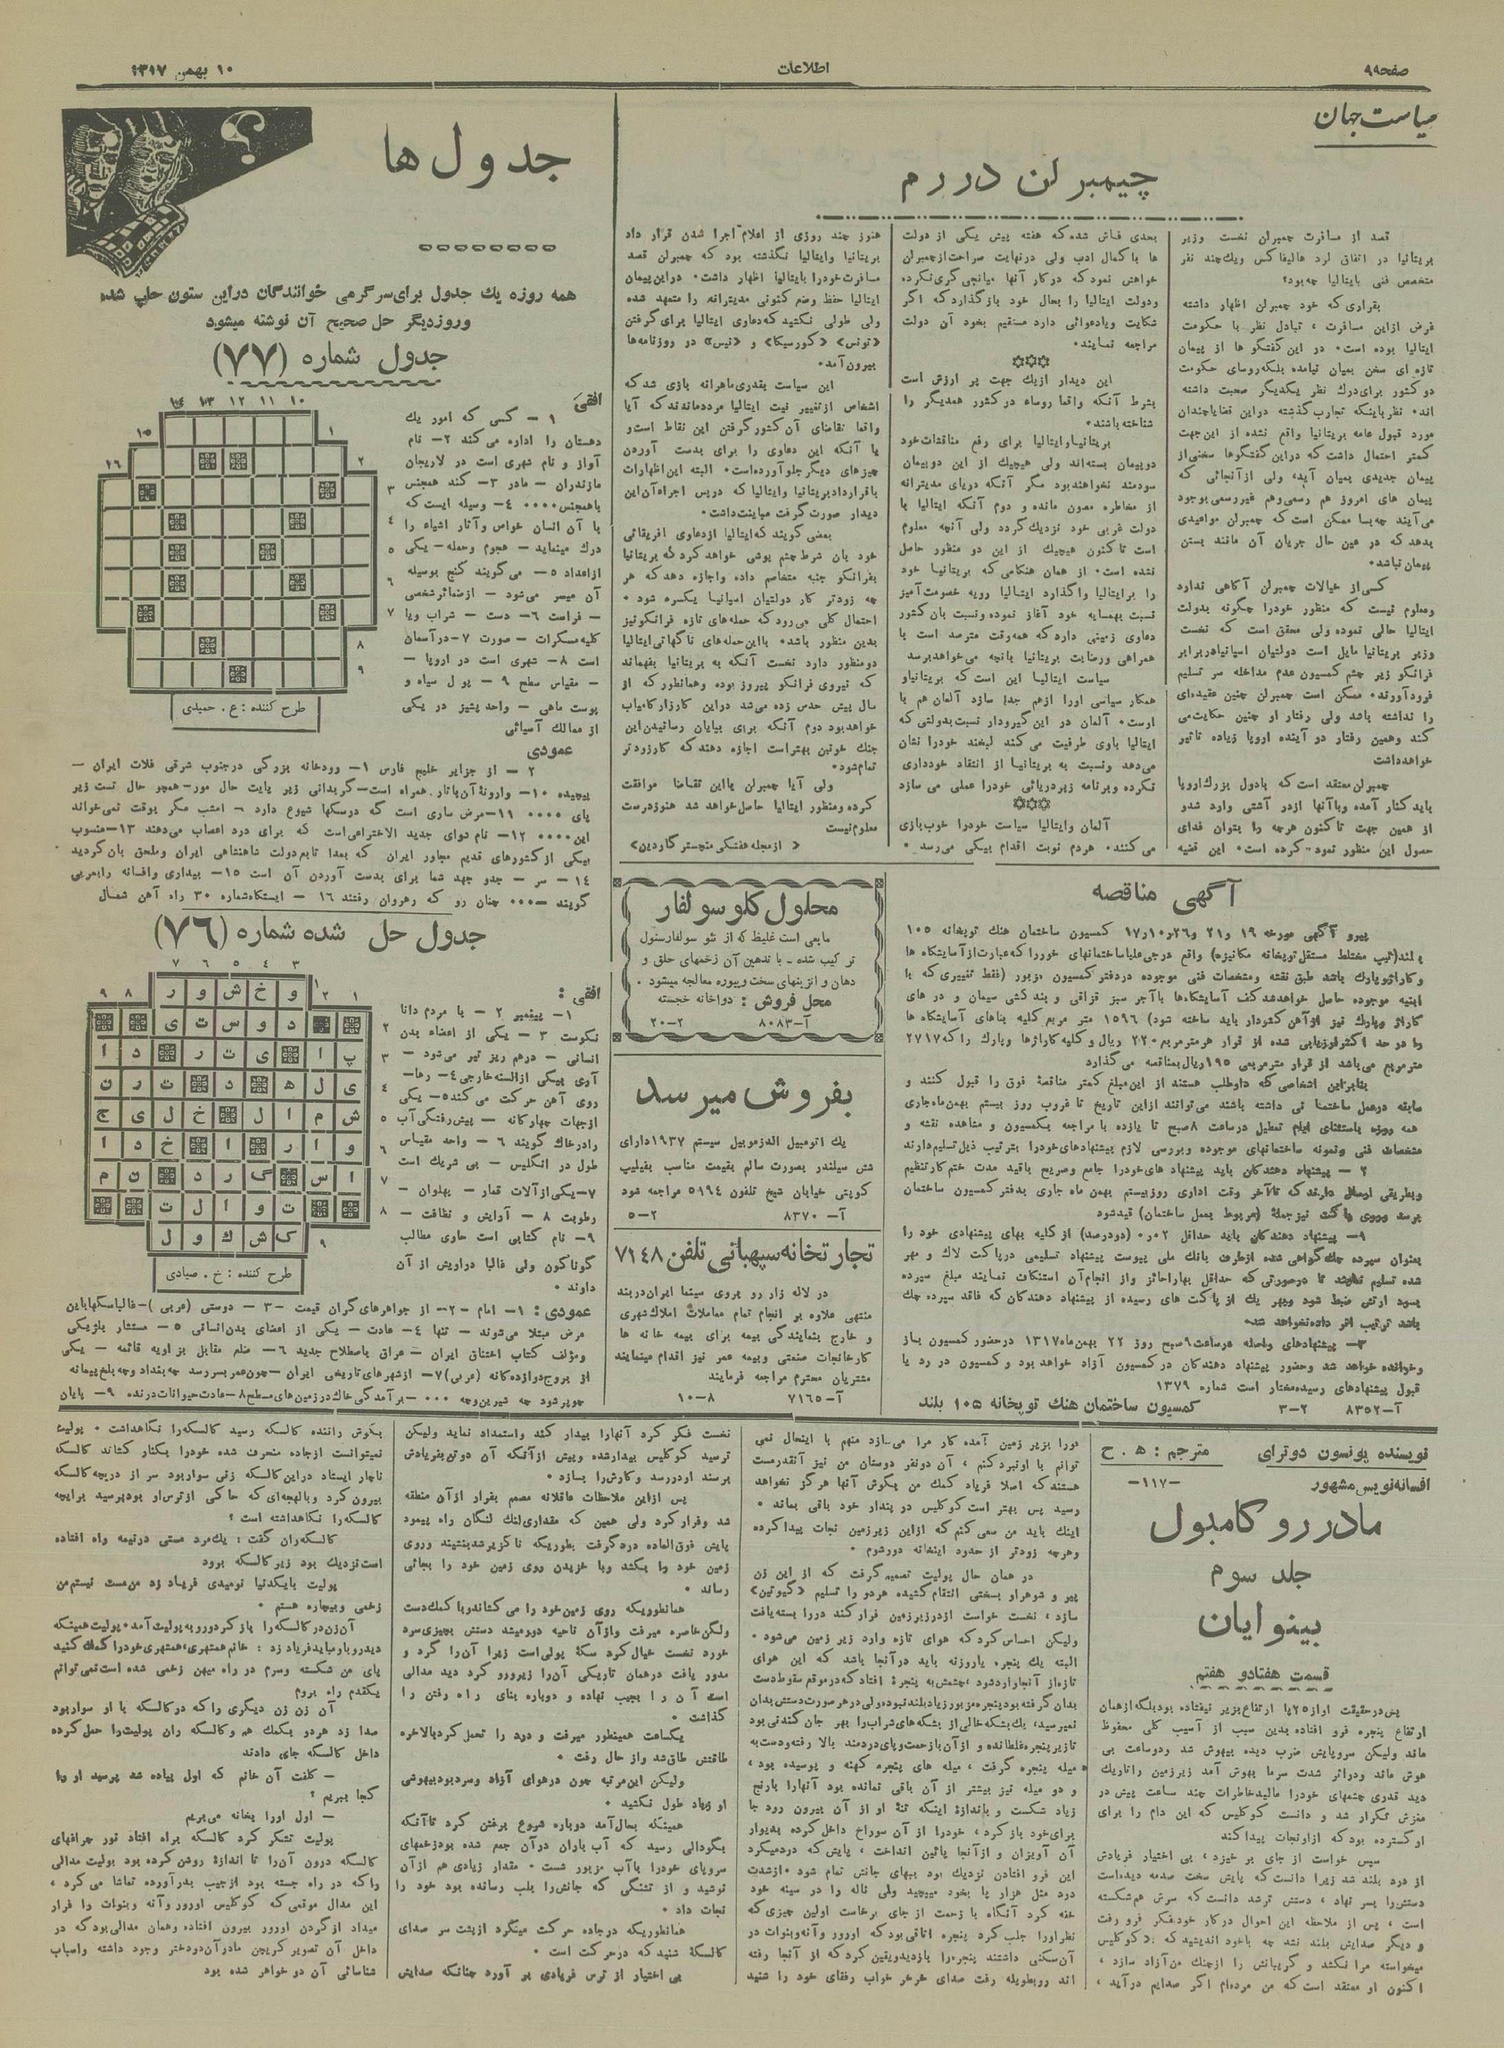 صفحه۹۹
اطلاعات
۱۰ بهمن ۱۳۱۷
سیاست جهان
چیمبرلن در رم
قصد از مسافرت چمبرلن نخست وزیر
بریتانیا در اتفاق لرد هالیفاکس ویک‌چند نفر
متخصص فنی بایتالیا چه‌بود؟
بقراری که خود چمبرلن اظهار داشته
غرض ازاین مسافرت ، تبادل نظر با حکومت
ایتالیا بوده است۰ در این گفتگو ها از پیمان
تازه ای سخن بمیان نیامده بلکه‌روسای حکومت
دو کشور برای‌درك نظر یکدیگر صحبت داشته
اند۰ نظرباینکه تجارب گذشته دراین قضایاچندان
مورد قبول عامه بریتانیا واقع نشده از این‌جهت
کمتر احتمال داشت که دراین گفتگوها سخنی‌از
پیمان جدیدی بمیان آید، ولی ازآنجائی که
پیمان های امروز هم رسمی‌وهم غیررسمی‌بوجود
می‌آیند چه‌بسا ممکن است که چمبرلن مواعیدی
بدهد که در عین حال جریان آن مانند بستن
پیمان نباشد۰
کسی‌از خیالات چمبرلن آگاهی ندارد
ومعلوم نیست که منظور خودرا چگونه بدولت
ایتالیا حالی نموده ولی محقق است که نخست
وزیر بریتانیا مایل است دولتیان اسپانیادربرابر
فرانکو زیر چشم کمسیون عدم مداخله سر تسلیم
فرودآورند۰ ممکن است چمبرلن چنین عقیده‌ای
را نداشته باشد ولی رفتار او چنین حکایت‌می
کند وهمین رفتار دو آینده اروپا زیاده تاثیر
خواهدداشت
چمبرلن‌معتقد است که بادول بزرك‌اروپا
باید کنار آمده وباآنها ازدر آشتی وارد شدو
از همین جهت تاکنون هرچه را بتوان فدای
حصول این منظور نمود۰کرده است۰ این قضیه
بعدی فاش شده‌که هفته پیش یکی از دولت
ها با کمال ادب ولی درنهایت صراحت‌ازچمبرلن
خواهش نمود که درکار آنها میانجی‌گری‌نکرده
ودولت ایتالیا را بحال خود بازگذارد که اگر
شکایت ویادعوائی دارد مستقیم بخود آن دولت
مراجعه نمایند۰
این دیدار ازیك جهت پر ارزش است
بشرط آنکه واقعا روساء دو‌کشور همدیگر را
شناخته باشند۰
بریتانیاوایتالیا برای رفع مناقشات‌خود
دوپیمان بسته‌اند ولی هیچیك از این دوپیمان
سودمند نخواهندبود مگر آنکه دریای مدیترانه
از مخاطره مصون مانده و دوم آنکه ایتالیا با
دولت غربی خود نزدیك‌گردد ولی آنچه معلوم
است تاکنون هیچیك از این دو منظور حاصل
نشده است۰ از همان هنگامی‌که بریتانیا خود
را برایتالیا واگذارد ایتالیا رویه خصومت‌آمیز
نسبت بهمسایه خود آغاز نموده‌ونسبت بان کشور
دعاوی زمینی دارد که همه‌وقت مترصد است با
همراهی ورضایت بریتانیا بانچه می‌خواهدبرسد
سیاست ایتالیا این است که بریتانیاو
همکار سیاسی اورا ازهم جدا سازد آلمان هم با
اوست۰ آلمان در این گیرودار نسبت بدولتی که
ایتالیا باوی طرفیت می‌کند لبخند خودرا نشان
می‌دهد ونسبت به بریتانیا از انتقاد خودداری
نکرده وبرنامه زیردریائی خودرا عملی می سازد
آلمان وایتالیا سیاست خودرا خوب‌بازی
می کنند۰ هردم نوبت اقدام بیکی می‌رسد ۰
هنوز چند روزی از اعلام اجرا شدن قرار داد
بریتانیا وایتالیا نگذشته بود که چمبرلن قصد
مسافرت خودرا بایتالیا اظهار داشت۰ دراین‌پیمان
ایتالیا حفظ وضع کنونی مدیترانه را متعهد شده
ولی طولی نکشید که‌دعاوی ایتالیا برای‌گرفتن
«تونس» «کورسیکا» و «نیس» در روزنامه‌ها
بیرون‌آمد۰
این سیاست بقدری‌ماهرانه بازی شد که
اشخاص ازتغییر نیت ایتالیا مرددماندند که آیا
واقعا تقاضای آن کشورگرفتن این نقاط است‌و
یا آنکه این دعاوی را برای بدست آوردن
چیزهای دیگر جلوآورده‌است۰ البته این‌اظهارات
باقراردادبریتانیا وایتالیا که درپس اجراء‌آن‌این
دیدار صورت گرفت مباینت‌داشت۰
بعضی گویند که‌ایتالیا ازدعاوی افریقائی
خود بان شرط چشم پوشی خواهد کرد که بریتانیا
بفرانکو جنبه متخاصم داده واجازه دهد که هر
چه زودتر کار دولتیان اسپانیا یکسره شود ۰
احتمال کلی می‌رود که حمله‌های تازه فرانکونیز
بدین منظور باشد۰ بااین‌حمله‌های ناگهانی‌ایتالیا
دومنظور دارد نخست آنکه به بریتانیا بفهماند
که نیروی فرانکو پیروز بوده وهمانطور که از
سال پیش حدس زده می‌شد دراین کارزارکامیاب
خواهدبود دوم آنکه برای بپایان رسانیدن‌این
جنك خونین بهتراست اجازه دهند که کارزودتر
تمام‌شود۰
ولی آیا چمبرلن بااین تقاضا موافقت
کرده ومنظور ایتالیا حاصل‌خواهد شد هنوزدرست
معلوم‌نیست
« ازمجله هفتگی منچستر گاردین»
جدول ها
همه روزه یك جدول برای‌سرگرمی خوانندگان دراین ستون چاپ شده
وروزدیگر حل صحیح آن نوشته میشود
جدول شماره (۷۷)
افقی
۱ – کسی که امور یك
دهستان را اداره می‌کند ۲– نام
آواز و نام شهری است در لاریجان
مازندران – مادر ۳– کند همجنس
باهمجنس ۰۰۰۰ ۴– وسیله ایست که
با آن انسان خواص وآثار اشیاء را
درك مینماید – هجوم وحمله– یکی
ازاعداد ۵– می‌گویند گنج بوسیله
آن میسر می‌شود – ازضمائرشخصی
– فراست ۶– دست – شراب ویا
کلیه مسکرات – صورت ۷– درآسمان
است ۸– شهری است در اروپا –
– مقیاس سطح ۹ – پول سیاه و
پوست ماهی – واحد پشیز در یکی
از ممالك آسیائی
۱۰ ۱۱ ۱۲ ۱۳ ۱۴
۱۵ ۱
۱۶ ۲
۳
۴
۵
۶
۷
۸
۹
طرح کننده : ع . حمیدی
عمودی
۲ – از جزایر خلیج فارس ۱– رودخانه بزرگی درجنوب شرقی فلات ایران –
پیچیده ۱۰– وارونۀ آن‌باتار، همراه است–گربدانی زیر پایت حال مور– همچو حال تست زیر
پای ۰۰۰۰ ۱۱–مرض ساری است که درسگها شیوع دارد – امشب مگر بوقت نمی‌خواند
این۰۰۰۰ ۱۲– نام دوای جدید الاختراعی‌است که برای درد اعصاب می‌دهند ۱۳–منسوب
بیکی ازکشورهای قدیم مجاور ایران که بعدا تابع‌دولت شاهنشاهی ایران وملحق بان گردید
۱۴– سر – جدو جهد شما برای بدست آوردن آن است ۱۵– بیداری وافسانه رابعربی
گویند –۰۰۰ چنان رو که رهروان رفتند ۱۶ – ایستگاه‌شماره ۳۰ راه آهن شمال
جدول حل شده شماره (۷۶)
افقی :
۱– پیغمبر ۲ – با مردم دانا
نکوست ۳ – یکی از اعضاء بدن
انسانی – درهم ریز تیر می‌شود –
آری بیکی ازالسنه خارجی ۴– رها–
روی آهن حرکت می کند ۵– یکی
ازجهات چهارگانه – پیش‌رفتگی‌آب
رادرخاك گویند ۶ – واحد مقیاس
طول در انگلیس – بی شریك است
۷–یکی‌ازآلات قمار – پهلوان –
رطوبت ۸ – آرایش و نظافت –
۹– نام کتابی است حاوی مطالب
گوناگون ولی غالبا دراویش از آن
دارند ۰
۳ ۴ ۵ ۶ ۷
۱ ۲ ۸ ۹
و خ ش و ر
د و س ت ی
پ ا ی ت ر د ا
ی ل ه د ت ر ن
ش م ا ل خ ل ی ج
و ا ر ا خ د ا
ا س گ ر د ن م
ت و ا ل ت
ك ش ك و ل
۲
۳
۴
۵
۶
۷
۸
۹
طرح کننده : خ . صیادی
عمودی : ۱– امام –۲– از جواهرهای گران قیمت –۳ – دوستی (عربی )–غالباسگهاباین
مرض مبتلا می‌شوند – تنها ۴– عادت – یکی از اعضای بدن‌انسانی ۵– مستشار بلژیکی
ومؤلف کتاب اختناق ایران – عراق باصطلاح جدید ۶– ضلع مقابل بزاویه قائمه – یکی
از بروج دوازده‌گانه (عربی) ۷– ازشهرهای تاریخی ایران –چون عمر بسر رسد چه بغداد وچه بلخ پیمانه
چوپرشود چه شیرین‌وچه ۰۰۰ –برآمدگی خاك درزمین‌های مسطح ۸–عادت حیوانات درنده ۹– پایان
آگهی مناقصه
پیرو آگهی مورخه ۱۹ و۲۱ و۲۶ر۱۰ر۱۷ کمسیون ساختمان هنك توپخانه ۱۰۵
بلند(تیپ مختلط مستقل‌توپخانه مکانیزه) واقع درجی‌علیاساختمانهای خودرا که‌عبارت‌ازآسایشگاه ها
وکاراژوپارك باشد طبق نقشه ومشخصات فنی موجوده دردفتر کمسیون مزبور (فقط تغییری که با
ابنیه موجوده حاصل خواهدشد کف آسایشگاه‌ها باآجر سبز قزاقی و بند کشی سیمان و در های
کاراژ وپارك نیز ازآهن کشودار باید ساخته شود) ۱۵۹۶ متر مربع کلیه بناهای آسایشگاه ها
را در حد اکثرارزیابی شده از قرار هرمترمربع ۲۲۰ ریال وکلیه کاراژها وپارك را که ۲۷۱۷
مترمربع می‌باشد از قرار مترمربعی ۱۹۵ریال‌بمناقصه می‌گذارد
بنابراین اشخاصی که داوطلب هستند از این‌مبلغ کمتر مناقصۀ فوق را قبول کنند و
سابقه درعمل ساختمانی داشته باشند می‌توانند ازاین تاریخ تا غروب روز بیستم بهمن‌ماه‌جاری
همه روزه باستثنای ایام تعطیل درساعت ۸ صبح تا یازده با مراجعه بکمسیون و مشاهده نقشه و
مشخصات فنی ونمونه ساختمانهای موجوده وبررسی لازم پیشنهادهای‌خودرا بترتیب ذیل‌تسلیم‌دارند
۲ – پیشنهاد دهندگان باید پیشنهاد های‌خودرا جامع وصریح باقید مدت ختم‌کارتنظیم
وبطریقی ارسال دارند که تاآخر وقت اداری روزبیستم بهمن ماه جاری بدفتر کمسیون ساختمان
برسد وروی پاکت نیز جملۀ (مربوط بعمل ساختمان) قیدشود
پیشنهاد دهندگان باید حداقل ۰۲ر۰ (دودرصد) از کلیه بهای پیشنهادی خود را
بعنوان سپرده چك گواهی شده ازطرف بانك ملی پیوست پیشنهاد تسلیمی درپاکت لاك و مهر
شده تسلیم نمایند تا درصورتی که حداقل بهاراحائز واز انجام‌آن استنکاف نمایند مبلغ سپرده
بسود ارتش ضبط شود وبهر یك از پاکت های رسیده از پیشنهاد دهندگان که فاقد سپرده چك
باشد ترتیب اثر داده‌نخواهد شد۰
پیشنهادهای واصله درساعت ۹صبح روز ۲۲ بهمن‌ماه۱۳۱۷ درحضور کمسیون باز
وخوانده خواهد شد وحضور پیشنهاد دهندگان در کمسیون آزاد خواهد بود و کمسیون در رد یا
قبول پیشنهادهای رسیده‌مختار است شماره ۱۳۷۹
آ–۸۳۵۲ ۲–۳ کمسیون ساختمان هنك توپخانه ۱۰۵ بلند
محلول کلو سولفار
مایعی است غلیظ که از نئو سولفارسنول
ترکیب شده – با تدهین آن زخمهای حلق و
دهان و انژینهای سخت وپیوره معالجه میشود .
محل فروش : دواخانه خجسته
آ–۸۰۸۳ ۲–۲۰
بفروش میرسد
یك اتومبیل الدزموبیل سیستم ۱۹۳۷دارای
شش سیلندر بصورت سالم بقیمت مناسب بفیلیپ
کوپتی خیابان شیخ تلفون ۵۱۹۴ مراجعه شود
آ– ۸۳۷۰ ۲–۵
تجارتخانه سپهبانی تلفن ۷۱۴۸
در لاله زار رو بروی سینما ایران‌دربند
منتهی علاوه بر انجام تمام معاملات املاك‌شهری
و خارج بنمایندگی بیمه برای بیمه خانه ها
کارخانجات صنعتی وبیمه عمر نیز اقدام مینمایند
مشتریان محترم مراجعه فرمایند
آ–۷۱۶۵ ۸–۱۰
نویسنده پونسون دوترای مترجم : ه . ح
افسانه‌نویس مشهور –۱۱۷–
مادر رو کامبول
جلد سوم
بینوایان
قسمت هفتادو هفتم
پس‌درحقیقت اواز۲۵پا ارتفاع بزیر نیفتاده بودبلکه‌ازهمان
ارتفاع پنجره فرو افتاده بدین سبب از آسیب کلی محفوظ
ماند ولیکن سروپایش ضرب دیده بیهوش شد ودوساعت بی
هوش ماند ودراثر شدت سرما بهوش آمد زیرزمین راتاریك
دید قدری چشمهای خودرا مالیدخاطرات چند ساعت پیش در
مغزش تکرار شد و دانست کوکلیس که این دام را برای
او گسترده بود که ازاونجات پیداکند
سپس خواست از جای بر خیزد ، بی اختیار فریادش
از درد بلند شد زیرا دانست‌که پایش سخت صدمه دیده‌است
دستش‌را بسر نهاد ، دستش ترشد دانست که سرش هم‌شکسته
است ، پس از ملاحظه این احوال درکار خودبفکر فرو رفت
و دیگر صدایش بلند نشد چه باخود اندیشید که :«کوکلیس
میخواسته مرا بکشد و گریبانش را ازچنك من‌آزاد سازد ،
اکنون او معتقد است‌که من مرده‌ام اگر صدایم درآید ،
دورا بزیر زمین آمده کار مرا می‌سازد منهم با اینحال نمی
توانم با اونبردکنم ، آن دونفر دوستان من نیز آنقدرمست
هستند که اصلا فریاد کمك من بگوش آنها هرگز نخواهد
رسید پس بهتر است کوکلیس در پندار خود باقی بماند ۰
اینك باید من سعی‌کنم که ازاین زیرزمین نجات پیداکرده
وهرچه زودتر از حدود اینخانه دورشوم ۰
در همان حال پولیت تصمیم‌گرفت که از این زن
پیر و شوهراو بسختی انتقام کشیده هردو را تسلیم «گیوتین»
سازد ، نخست خواست ازدرزیرزمین فرار کند دررا بسته‌یافت
ولیکن احساس کرد که هوای تازه وارد زیر زمین می‌شود ۰
البته یك پنجره یاروزنه باید درآنجا باشد که این هوای
تازه‌از آنجاواردشود ، چشمش به پنجرۀ افتادکه درموقع سقوط‌دست
بدان گرفته‌بودپنجره مزبورزیادبلندنبوده‌ولی‌درهرصورت‌دستش‌بدان
نمیرسید، یك‌بشکه‌خالی‌از بشکه‌های‌شراب‌را بهر جان کندنی بود
تازیر پنجره غلطانده و ازآن بازحمت‌وپای‌دردمند بالا رفته‌ودست‌به
میله پنجره گرفت ، میله های پنجره کهنه و پوسیده بود ،
و دو میله نیز بیشتر از آن باقی نمانده بود آنهارا بارنج
زیاد شکست و باندازۀ اینکه تنۀ او از آن بیرون رود جا
برای‌خود بازکرد ، خودرا از آن سوراخ داخل‌کرده بدیوار
آن آویزان و ازآنجا پائین انداخت ، پایش که دردمیکرد
این فرو افتادن نزدیك بود ببهای جانش تمام شود ۰ازشدت
درد مثل هزار پا بخود میپیچید ولی ناله را در سینه خود
خفه کرد آنگاه با زحمت از جای برخاست اولین چیزی‌که
نظراورا جلب کرد پنجره اتاقی‌بود که اورور وآنه‌وبنوات در
آن‌سکنی داشتند پنجره‌را بازدیدویقین کردکه از آنجا رفته
اند روبطویله رفت صدای خرخر خواب رفقای خود را شنید
نخست فکر کرد آنهارا بیدار کند واستمداد نماید ولیکن
ترسید کوکلیس بیدارشده وپیش ازآنکه آن دوتن‌بفریادش
برسند اودررسد وکارش‌را بسازد ۰
پس ازاین ملاحظات عاقلانه مصمم بفرار ازآن منطقه
شد وفرار کرد ولی همین که مقداری‌لنك لنگان راه پیمود
پایش فوق‌العاده دردگرفت بطوریکه ناگزیرشدبنشیند وروی
زمین خود را بکشد وبا خزیدن روی زمین خود را بجائی
رساند ۰
همانطوریکه روی زمین خود را می‌کشاندوبا کمك‌دست
ولگن خاصره میرفت وازآن ناحیه دورمیشد دستش بچیزی‌سرد
خورد نخست خیال‌کرد سکۀ پولی‌است زیرا آن‌را گرد و
مدور یافت درهمان تاریکی آن‌را زیروروکرد دید مدالی
است آن را بجیب نهاده و دوباره بنای راه رفتن را
گذاشت ۰
یکساعت همینطور میرفت و درد را تحمل کردبالاخره
طاقتش طاق‌شد واز حال رفت ۰
ولیکن این‌مرتبه چون درهوای آزاد وسردبودبیهوشی
او زیاد طول نکشید ۰
همینکه بحال‌آمد دوباره شروع برفتن کرد تاآنکه
بگودالی رسید که آب باران درآن جمع شده بودزخمهای
سروپای خودرا باآب مزبور شست۰ مقدار زیادی هم ازآن
نوشید و از تشنگی که جانش‌را بلب رسانده بود خود را
نجات داد ۰
همانطوریکه درجاده حرکت میکرد ازپشت سر صدای
کالسکۀ شنید که درحرکت است ۰
بی اختیار از ترس فریادی بر آورد چنانکه صدایش
بگوش راننده کالسکه رسید کالسکه‌را نگاهداشت ۰ پولیت
نمیتوانست ازجاده منحرف شده خودرا بکنار کشاند کالسکه
ناچار ایستاد دراین کالسکه زنی سواربود سر از دریچه کالسکه
بیرون کرد وبالهجه‌ای که حاکی از ترس‌او بودپرسید برایچه
کالسکه‌را نگاهداشته است ؟
کالسکه‌ران گفت : یك‌مرد مستی درنیمه راه افتاده
است‌نزدیك بود زیر کالسکه برود
پولیت بایکدنیا نومیدی فریاد زد من‌مست نیستم‌من
زخمی وبیچاره هستم ۰
آن‌زن‌درکالسکه‌را بازکردوروبه‌پولیت آمد۰ پولیت همینکه
دیدروباومیایدفریادزد : خانم‌همشهری، همشهری‌خودراکمك‌کنید
پای من شکسته وسرم در راه میهن زخمی شده است‌نمی‌توانم
یکقدم راه بروم
آن زن زن دیگری را که درکالسکه با او سواربود
صدا زد هردو بکمك هم وکالسکه ران پولیت‌را حمل‌کرده
داخل کالسکه جای دادند
– کلفت آن خانم که اول پیاده شد پرسید او را
کجا ببریم ؟
– اول اورا بخانه می‌بریم
پولیت تشکر کرد کالسکه براه افتاد نور چراغهای
کالسکه درون آن‌را تا اندازۀ روشن‌کرده بود پولیت مدالی
را که در راه جسته بود ازجیب بدرآورده تماشا می‌کرد ،
این مدال موقعی‌که کوکلیس اورور وآنه وبنوات را فرار
میداد ازگردن اورور بیرون افتاده وهمان مدالی‌بود که در
داخل آن تصویر کریچن مادرآن‌دودختر وجود داشته واسباب
شناسائی آن دو خواهر شده بود